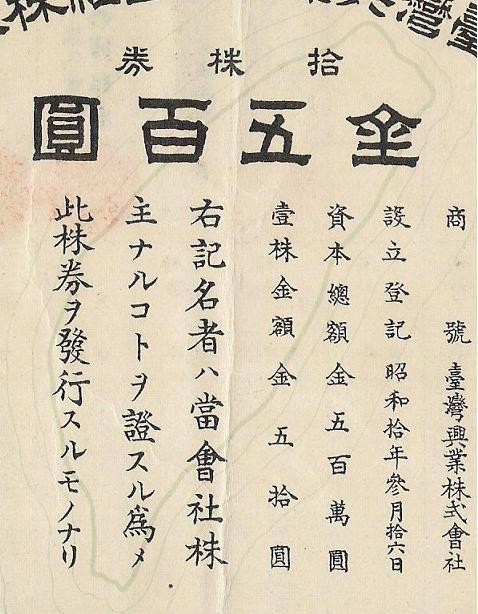 拾株券
金五百圓
商號 臺灣興業株式會社
設立登記 昭和拾年參月拾六日
資本總額 金五百萬圓
壹株金額 金五拾圓
右記名者ハ當會社株
主ナルコトヲ證スル爲メ
此株券ヲ發行スルモノナリ